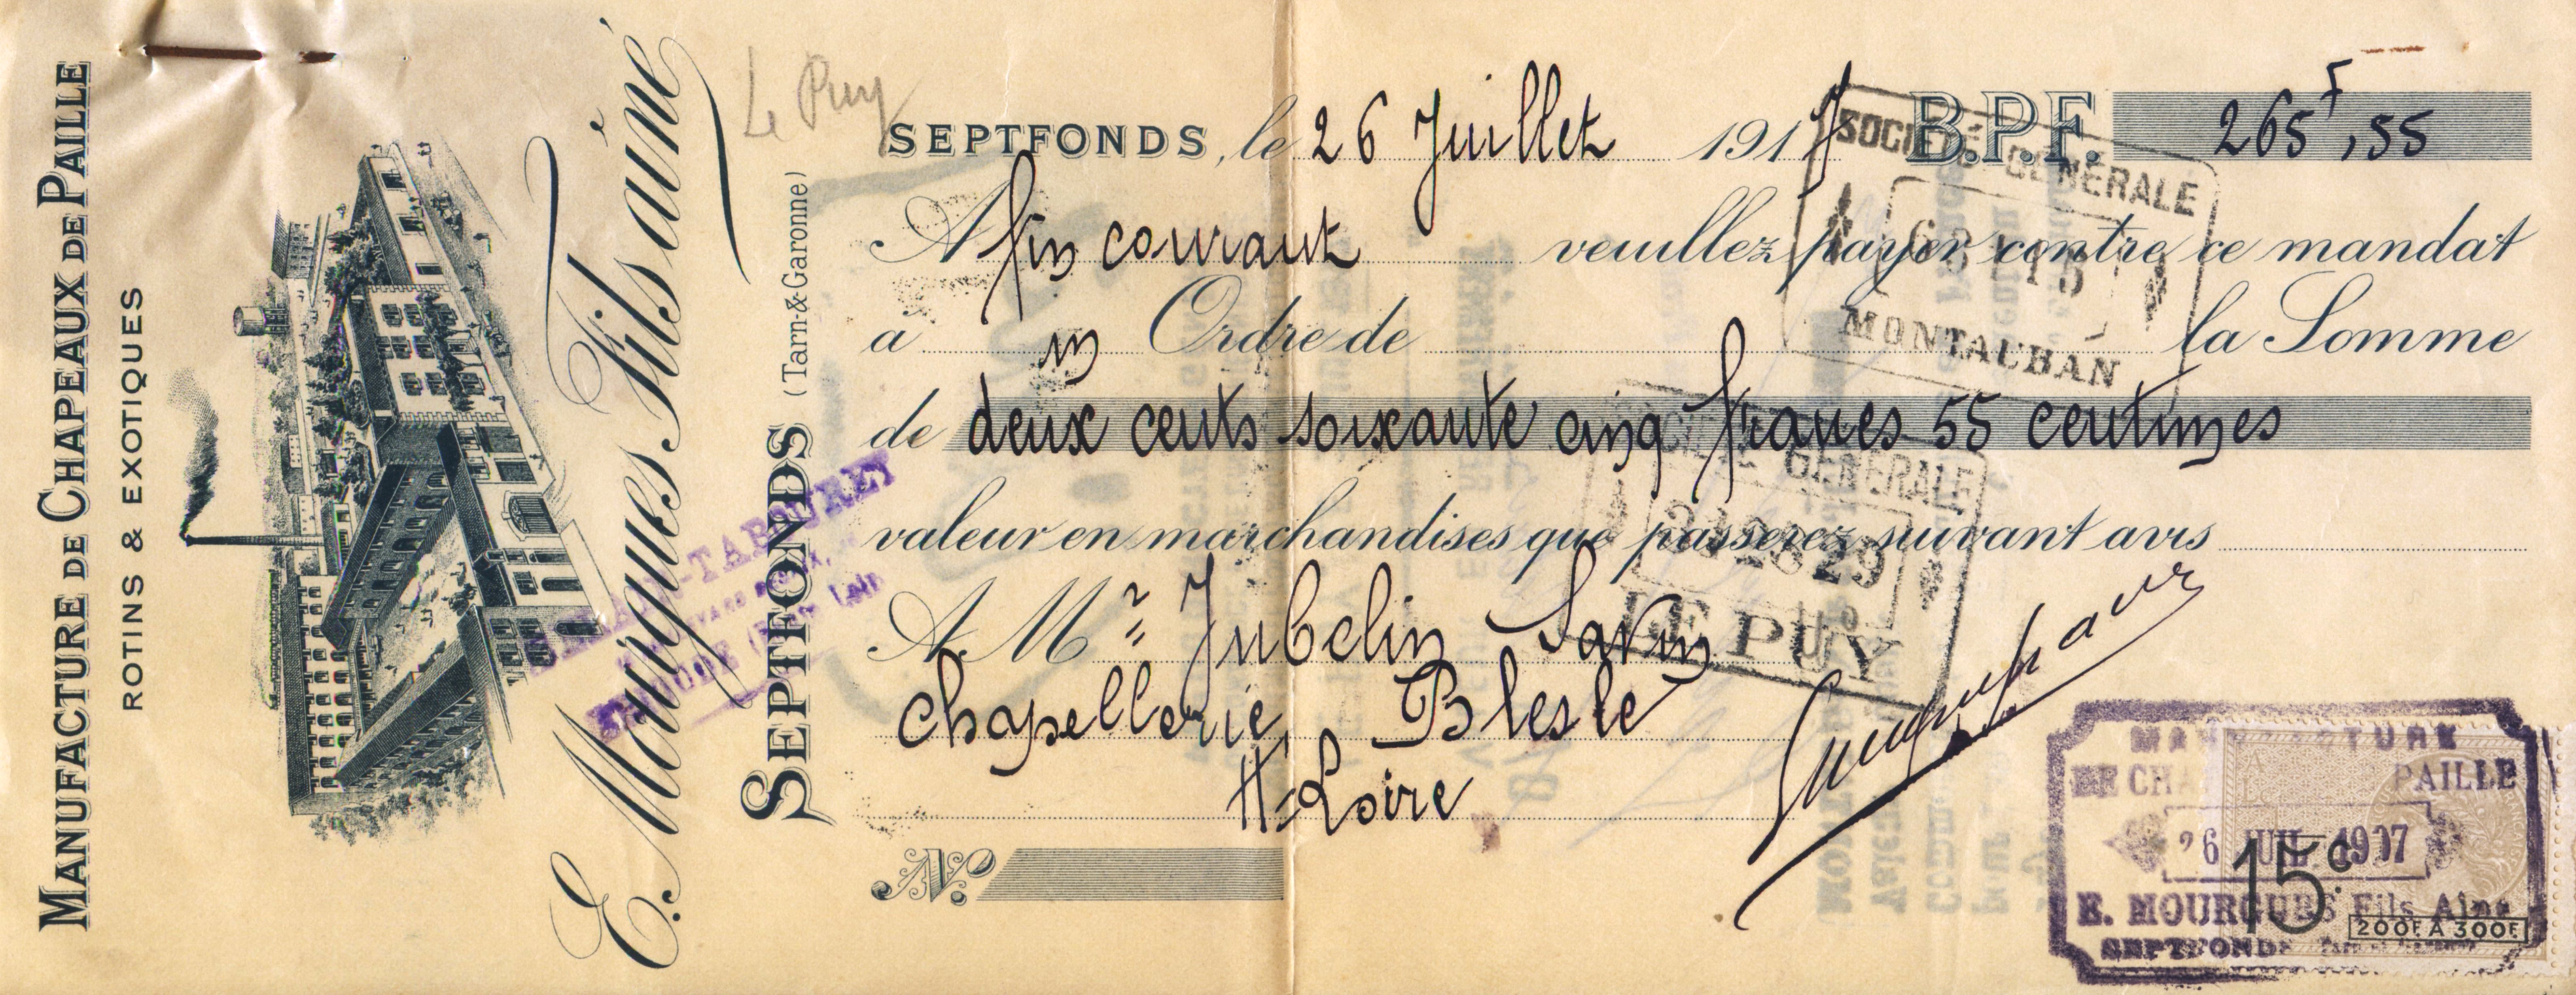 MANUFACTURE DE CHAPEAUX DE PAILLE
ROTINS & EXOTIQUES
E. Mourgues Fils ainé
SEPTFONDS (Tarn-&-Garonne)
Le Puy
SEPTFONDS, le 26 Juillet 1917 B.P.F. 265F,55
A fin courant veuillez payer contre ce mandat
à m Ordre de la Somme
de deux cents soixante cinq francs 55 centimes
valeur en marchandises que passerez suivant avis
A Mr Jubelin Savin
Chapellerie Blesle
Hte Loire
No.
SOCIÉTÉ GÉNÉRALE
MONTAUBAN
GÉNÉRALE
LE PUY
PAILLE
26 JUIL 1917
E. MOURGUES Fils Aîné
SEPTFONDS
15c.
200F. A 300F.